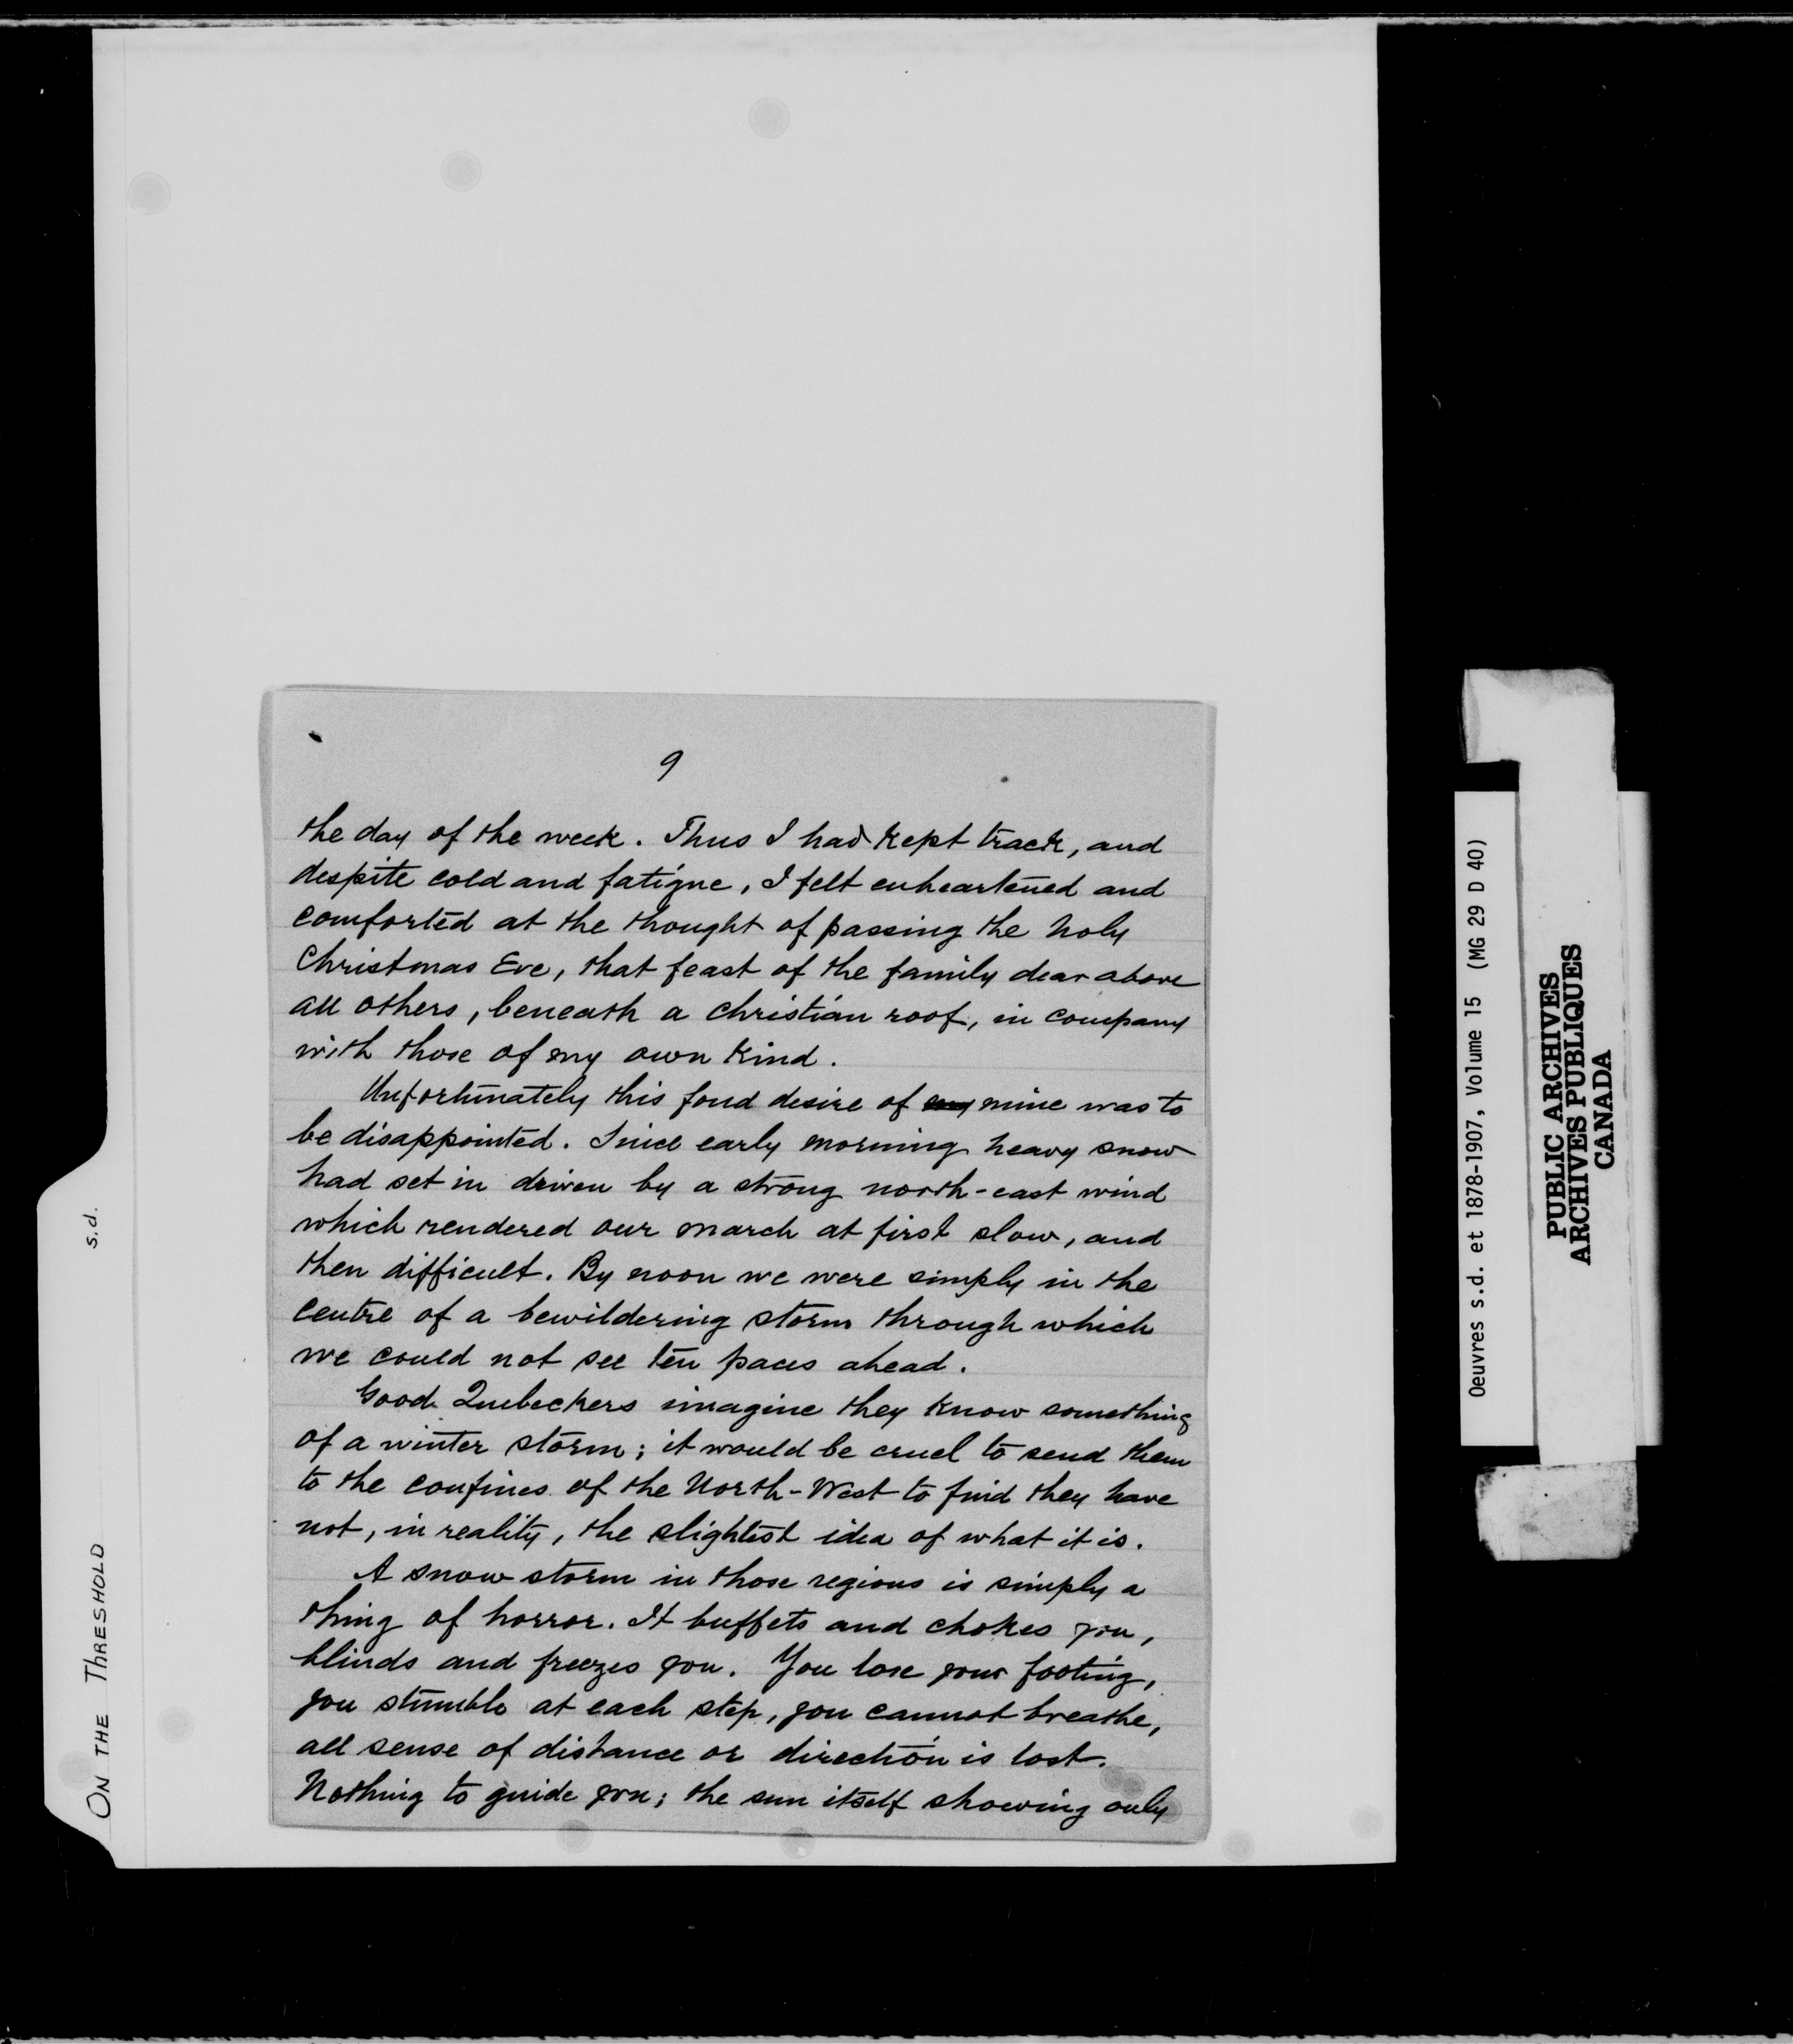 9
the day of the week. Thus I had kept track, and
despite cold and fatigue, I felt enheartened and
comforted at the thought of passing the holy
Christmas Eve, that feast of the family dear above
all others, beneath a christian roof, in company
with those of my own kind.
Unfortunately this fond desire of my mine was to
be disappointed. Since early morning heavy snow
had set in driven by a strong north-east wind
which rendered our march at first slow, and
then difficult. By noon we were simply in the
centre of a bewildering storm through which
we could not see ten paces ahead.
Good Quebeckers imagine they know something
of a winter storm; it would be cruel to send them
to the confines of the North-West to find they have
not, in reality, the slightest idea of what it is.
A snow storm in those regions is simply a
thing of horror. It buffets and chokes you,
blinds and freezes you. You lose your footing,
you stumble at each step, you cannot breathe,
all sense of distance or direction is lost.
Nothing to guide you; the sun itself showing only
ON THE THRESHOLD s.d.
Oeuvres s.d. et 1878-1907, Volume 15 (MG 29 D 40)
PUBLIC ARCHIVES
ARCHIVES PUBLIQUES
CANADA